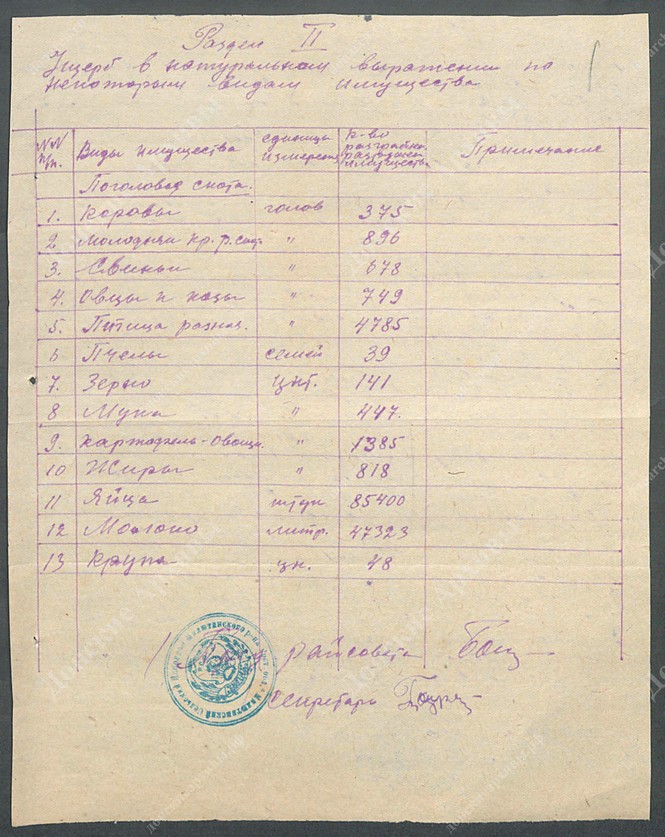 Раздел II
Ущерб в натуральном выражении по
некоторым видам имущества
NN п/п.	Виды имущества	единицы измерения	К-во разграбл. имущества	Примечание
Поголовье скота.
1.	Коровы	голов	375
2	Молодняк кр. р. скот.	"	896
3.	Свиньи	"	678
4.	Овцы и козы	"	749
5.	Птица разная.	"	4785
6	Пчелы	семей	39
7.	Зерно	цнт.	141
8	Мука	"	447.
9.	Картофель-овощи.	"	1385
10	Жиры	"	818
11	Яйца	штук	85400
12	Молоко	литр.	47323
13	Крупа	цн.	48
райсовета
секретарь